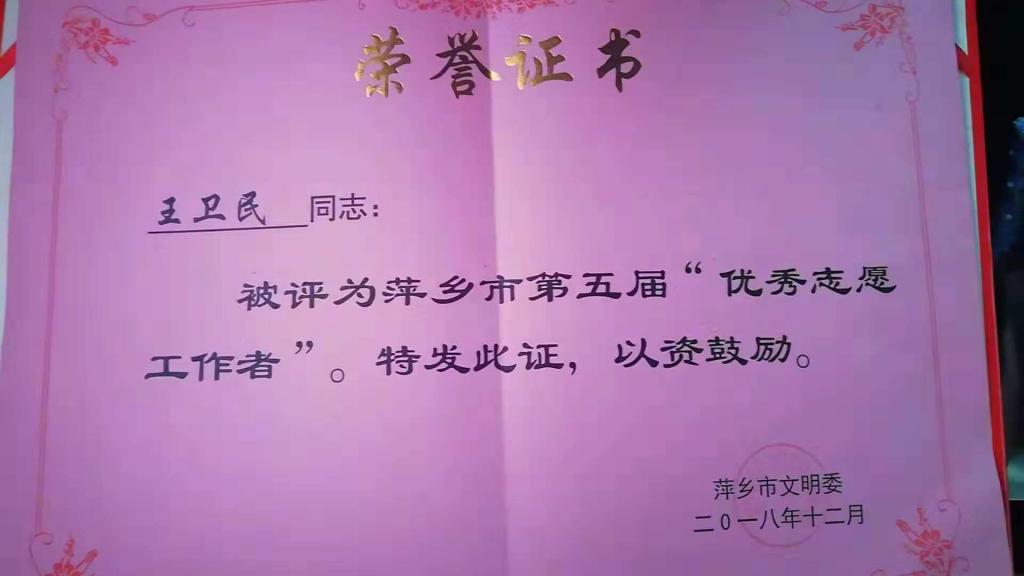 荣誉证书
王卫民 同志：
被评为萍乡市第五届“优秀志愿
工作者”。特发此证，以资鼓励。
萍乡市文明委
二0一八年十二月